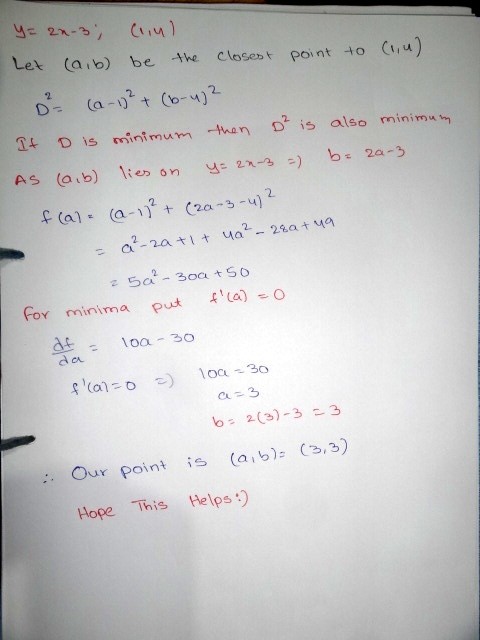 y= 2x-3; (1,4)
Let (a,b) be the closest point to (1,4)
D²= (a-1)² + (b-4)²
If D is minimum then D² is also minimum
As (a,b) lies on y= 2x-3 => b= 2a-3
f(a)= (a-1)² + (2a-3-4)²
= a²-2a+1 + 4a²-28a+49
= 5a²-30a+50
for minima put f'(a) = 0
df/da = 10a-30
f'(a)=0 => 10a=30
a=3
b= 2(3)-3 = 3
∴ Our point is (a,b)= (3,3)
Hope This Helps:)